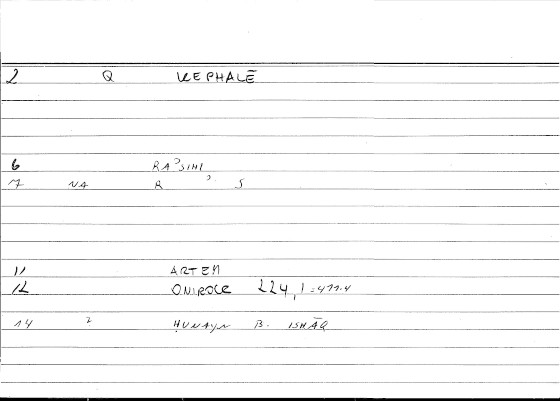 2 Q KEPHALĒ
6 RAʾSIHI
7 NA R ʾ S
11 ARTEM
12 ONIROCR 224,1 = 411.4
14 2 ḤUNAYN B. ISḤĀQ